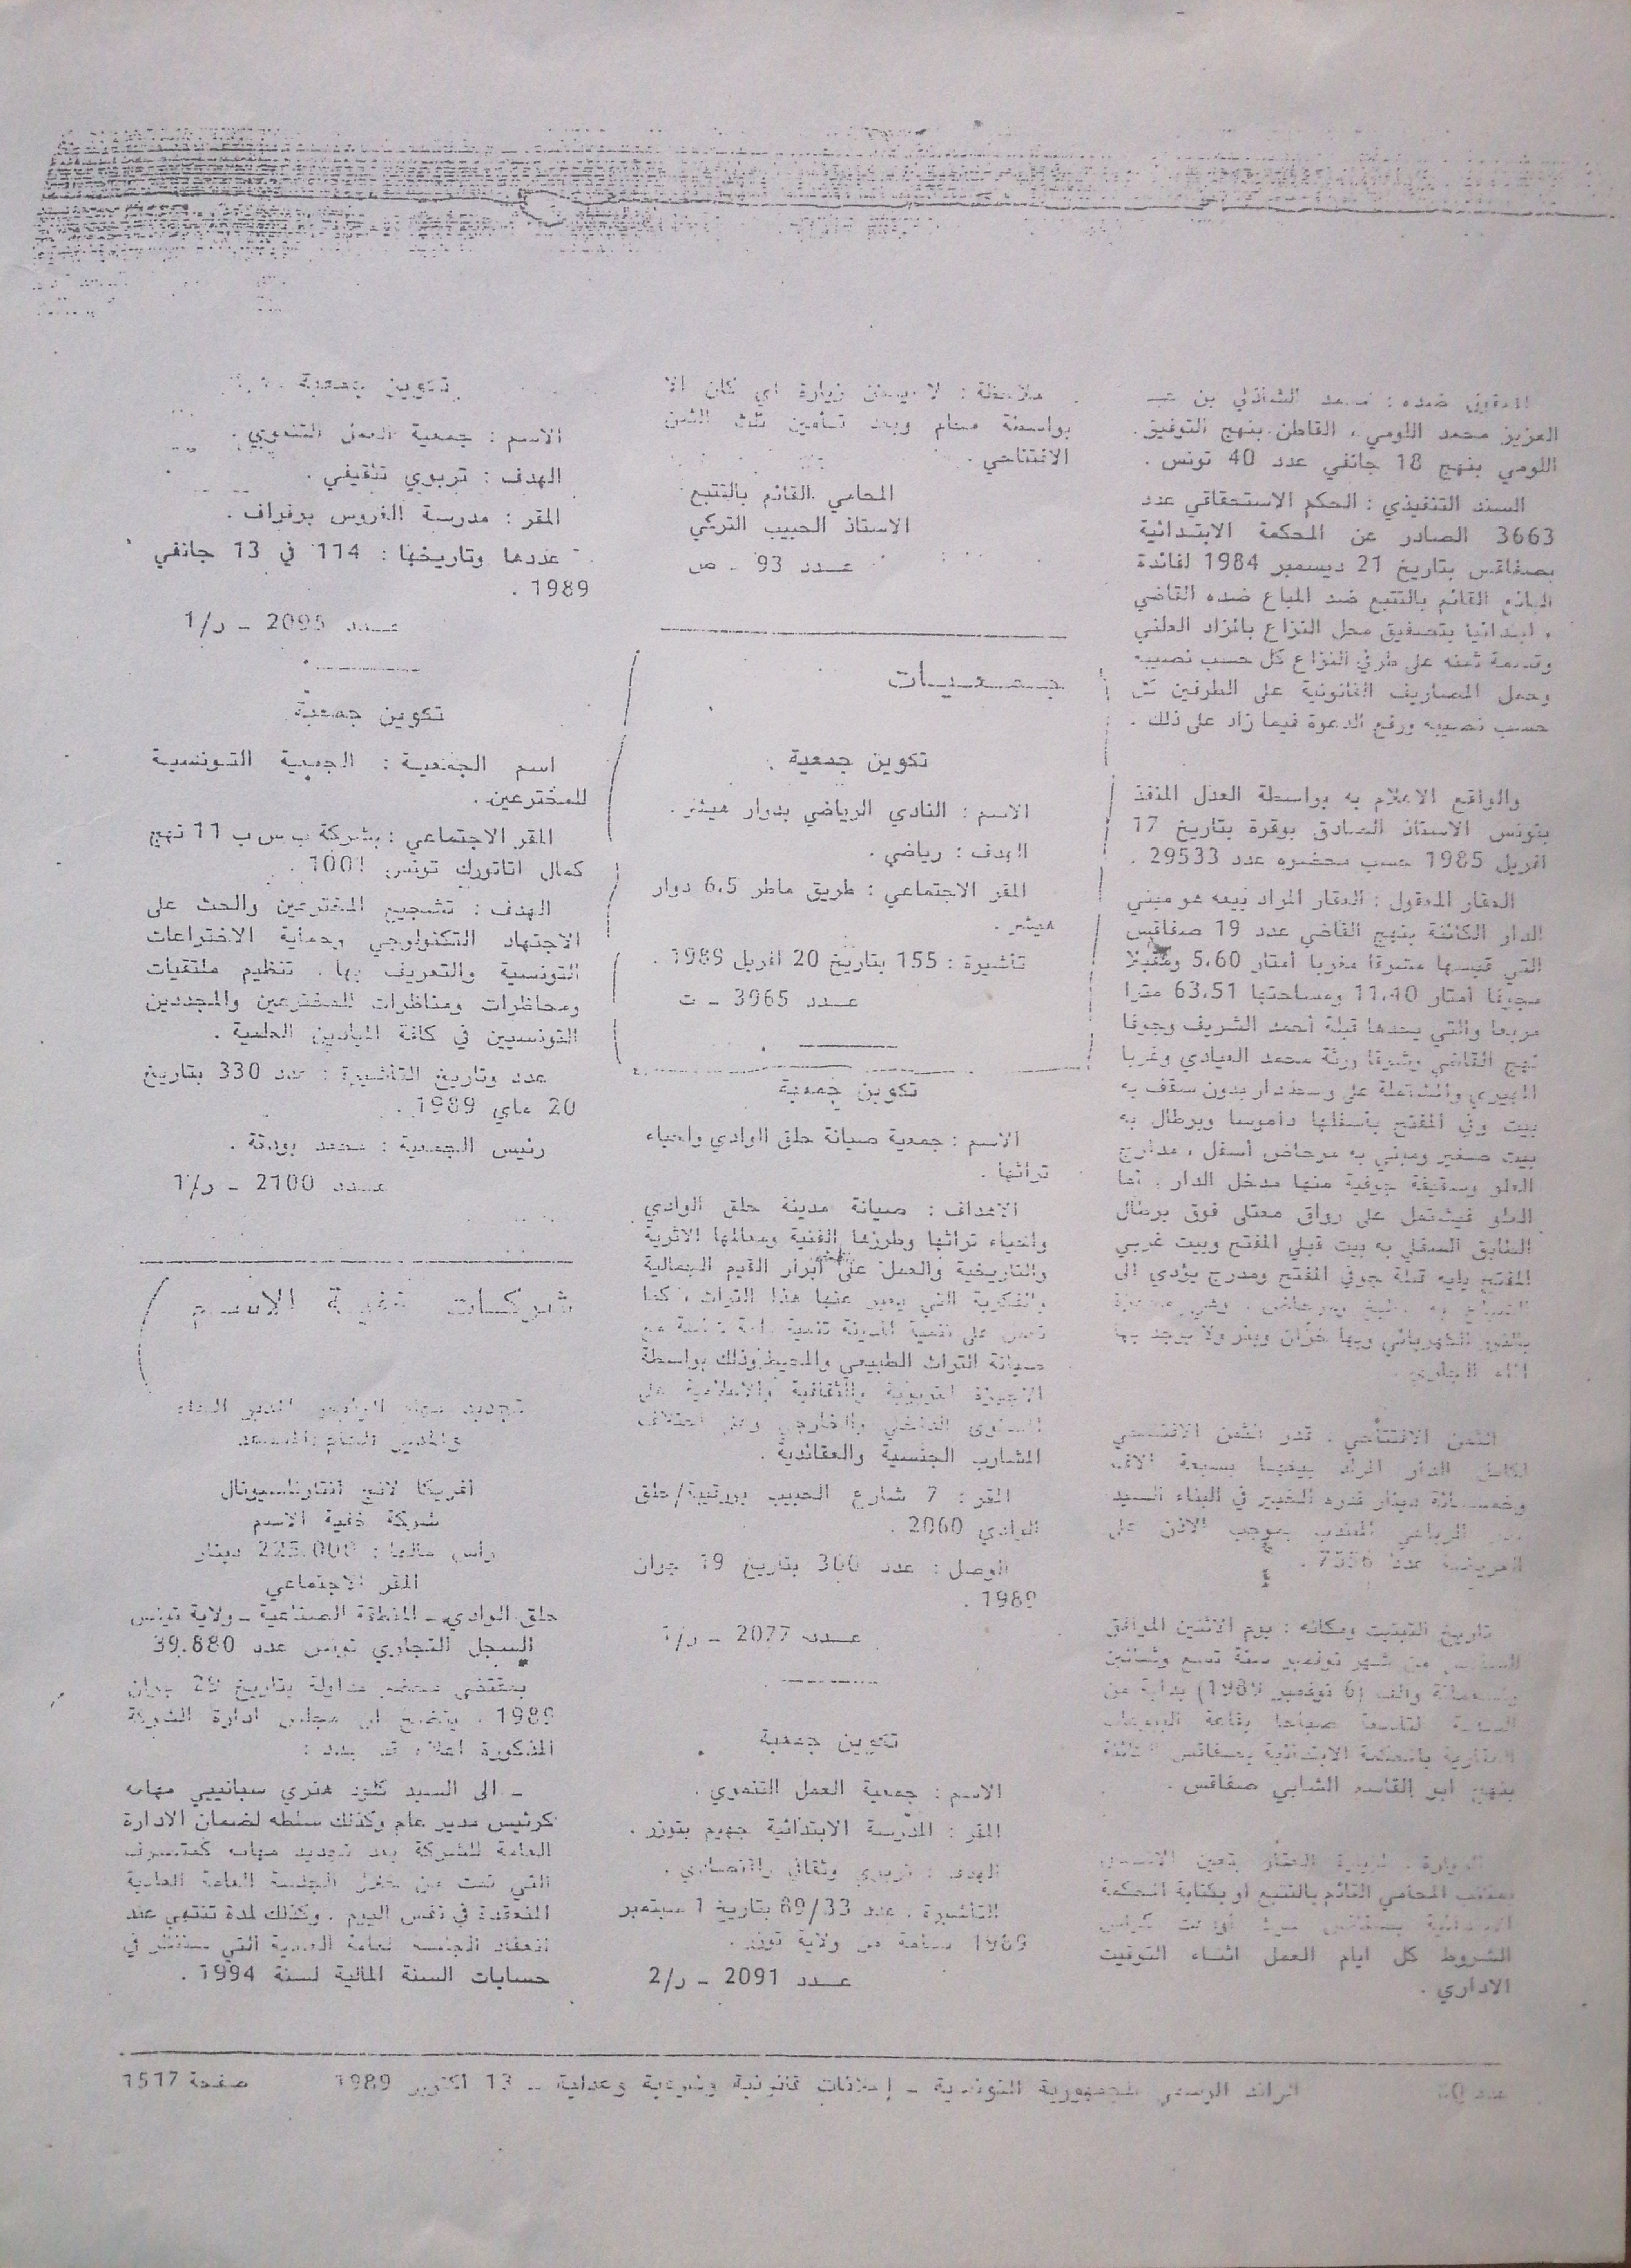 العزيز محمد اللومي ، القاطن بنهج التوفيق .
اللومي بنهج 18 جانفي عدد 40 تونس .
السند التنفيذي : الحكم الاستحقاقي عدد
3663 الصادر عن المحكمة الابتدائية
بصفاقس بتاريخ 21 ديسمبر 1984 لفائدة
البائع القائم بالتتبع ضد المباع ضده القاضي
ابتدائيا بتصفيق محل النزاع بالمزاد العلني
وقسمة ثمنه على طرفي النزاع كل حسب نصيبه
وحمل المصاريف القانونية على الطرفين كل
حسب نصيبه ورفع الدعوة فيما زاد على ذلك .
والواقع الاعلام به بواسطة العدل المنفذ
بتونس الاستاذ الصادق بوقرة بتاريخ 17
افريل 1985 حسب محضره عدد 29533 .
العقار المعقول : العقار المراد بيعه هو مبني
الدار الكائنة بنهج القاضي عدد 19 صفاقس
التي قيسها مشرقا مغربا أمتار 5،60 ومقبلا
مجوفا أمتار 11،40 ومساحتها 63،51 مترا
مربعا والتي يحدها قبلة أحمد الشريف وجوفا
نهج القاضي وشرقا ورثة محمد العيادي وغربا
المهيري والمشتملة على وسط دار بدون سقف به
بيت وفي المفتح بأسفلها داموسا وبرطال به
بيت صغير ومبني به مرحاض أسفل ، مدارج
العلو وسقيفة جوفية منها مدخل الدار . أما
العلو فيشتمل على رواق معتلى فوق برطال
الطابق السفلي به بيت قبلي المفتح وبيت غربي
المفتح يليه قبلة جوفي المفتح ومدرج يؤدي الى
بالنور الكهربائي وبها خزان وبئر ولا يوجد بها
الماء الجاري .
الثمن الافتتاحي . قدر الثمن الافتتاحي
لكامل الدار المراد بيعها بسبعة الاف
وخمسمائة دينار قدره الخبير في البناء السيد
المنتدب بموجب الاذن على
العريضة عدد 7556 .
تاريخ التبتيت ومكانه : يوم الاثنين الموافق
للسادس من شهر نوفمبر سنة تسع وثمانين
وتسعمائة والف (6 نوفمبر 1989) بداية من
الساعة التاسعة صباحا بقاعة البيوعات
العقارية بالمحكمة الابتدائية بصفاقس الكائنة
بنهج ابو القاسم الشابي صفاقس .
الزيارة . لزيارة العقار يتعين الاتصال
بمكتب المحامي القائم بالتتبع أو بكتابة المحكمة
الشروط كل ايام العمل اثناء التوقيت
الاداري .
ملاحظة : لا يمكن زيارة اي كان الا
بواسطة محام وبعد تأمين ثلث الثمن
الافتتاحي .
المحامي القائم بالتتبع
الاستاذ الحبيب التركي
عـــدد 93 ـ ص
جـمـعـيـات
تكوين جمعية .
الاسم : النادي الرياضي بدوار هيشر .
الهدف : رياضي .
المقر الاجتماعي : طريق ماطر 6،5 دوار
هيشر .
تأشيرة : 155 بتاريخ 20 افريل 1989 .
عـــدد 3965 ـ ت
تكوين جمعية
الاسم : جمعية صيانة حلق الوادي واحياء
تراثها .
الاهداف : صيانة مدينة حلق الوادي
واحياء تراثها وطرزها الفنية ومعالمها الاثرية
والتاريخية والعمل على ابراز القيم الجمالية
والفكرية التي يعبر عنها هذا التراث ، كما
تعمل على تنمية المدينة تنمية
صيانة التراث الطبيعي والمحيط وذلك بواسطة
الاجهزة التربوية والثقافية والاعلامية على
المستوى الداخلي والخارجي وعلى اختلاف
المشارب الجنسية والعقائدية .
المقر : 7 شارع الحبيب بورقيبة/حلق
الوادي 2060 .
الوصل : عدد 360 بتاريخ 19 جوان
1989 .
عـــدد 2077 ـ ر/1
تكوين جمعية
الاسم : جمعية العمل التنموي .
المقر : المدرسة الابتدائية جهيم بتوزر .
الهدف : تربوي وثقافي واقتصادي .
التأشيرة . عدد 89/33 بتاريخ 1 سبتمبر
1989 مسلمة من ولاية توزر .
عـــدد 2091 ـ ر/2
تكوين جمعية
الاسم : جمعية العمل التنموي .
الهدف : تربوي تثقيفي .
المقر : مدرسة الغروس برفراف .
عددها وتاريخها : 114 في 13 جانفي
1989 .
عـــدد 2095 ـ ر/1
تكوين جمعية
اسم الجمعية : الجمعية التونسية
للمخترعين .
المقر الاجتماعي : بشركة ب س ب 11 نهج
كمال اتاتورك تونس 1001 .
الهدف : تشجيع المخترعين والحث على
الاجتهاد التكنولوجي وحماية الاختراعات
التونسية والتعريف بها . تنظيم ملتقيات
ومحاظرات ومناظرات للمخترعين والمجددين
التونسيين في كافة الميادين العلمية .
عدد وتاريخ التأشيرة : عدد 330 بتاريخ
20 ماي 1989 .
رئيس الجمعية : محمد بودقة .
عـــدد 2100 ـ ر/1
شركـات خفيـة الاسـم
تجديد مهام الرئيس المدير العام
والمدير العام المساعد
أفريكا لانج انتارناسيونال
شركة خفية الاسم
رأس مالها : 225.000 دينار
المقر الاجتماعي
حلق الوادي ـ المنطقة الصناعية ـ ولاية تونس
السجل التجاري تونس عدد 39.880
بمقتضى محضر مداولة بتاريخ 29 جوان
1989 . يتضح ان مجلس ادارة الشركة
المذكورة اعلاه قد جدد :
ـ الى السيد كلود هنري سبانيي مهامه
كرئيس مدير عام وكذلك سلطه لضمان الادارة
العامة للشركة بعد تجديد مهامه كمتصرف
التي تمت من خلال الجلسة العامة العادية
المنعقدة في نفس اليوم . وكذلك لمدة تنتهي عند
انعقاد الجلسة العامة العادية التي ستنظر في
حسابات السنة المالية لسنة 1994 .
الرائد الرسمي للجمهورية التونسية ـ إعلانات قانونية وشرعية وعدلية ـ 13 اكتوبر 1989 صفحة 1517